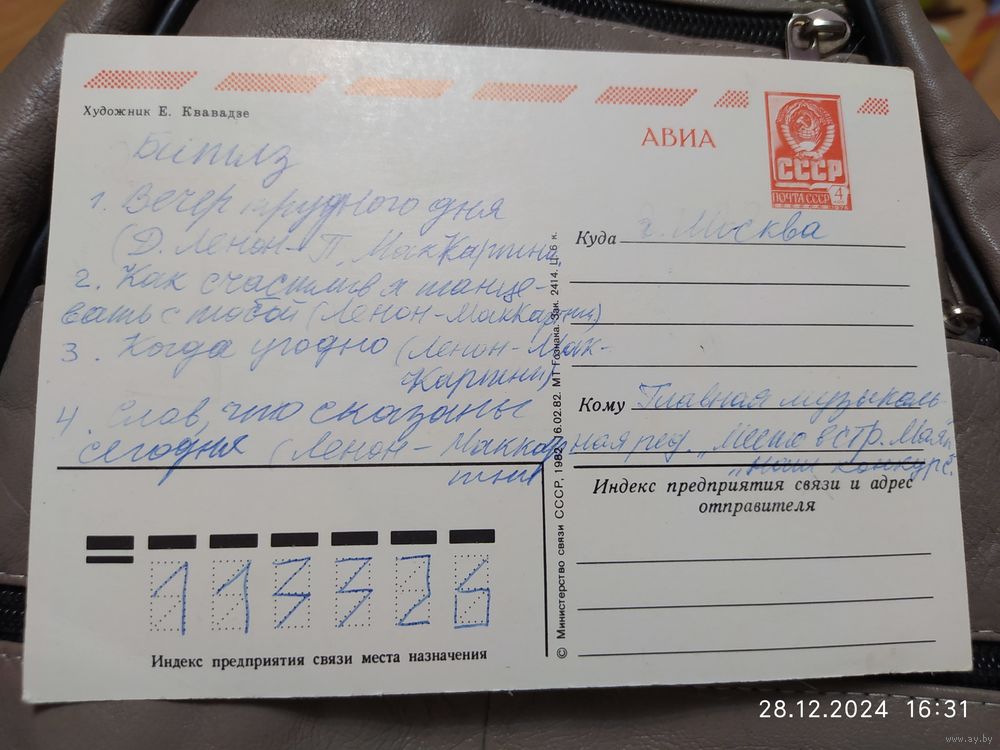 Художник Е. Квавадзе
АВИА
СССР
ПОЧТА СССР
4
Битлз
1. Вечер трудного дня
(Д. Ленон- П. МакКартни
2. Как счастлив я танце-
вать с тобой (Ленон-МакКартни)
3. Когда угодно (Ленон-Мак-
Картни)
4. Слов, что сказаны
сегодня (Ленон- Маккар
тни
Куда г. Москва
Кому Главная музыкаль
ная ред. „Место встр. Маяк
„Наш конкурс"
Индекс предприятия связи и адрес
отправителя
113326
Индекс предприятия связи места назначения
© Министерство связи СССР, 1982. 16.02.82. МТ Гознака. Зак. 2414. Ц. 6 к.
28.12.2024 16:31
www.ay.by